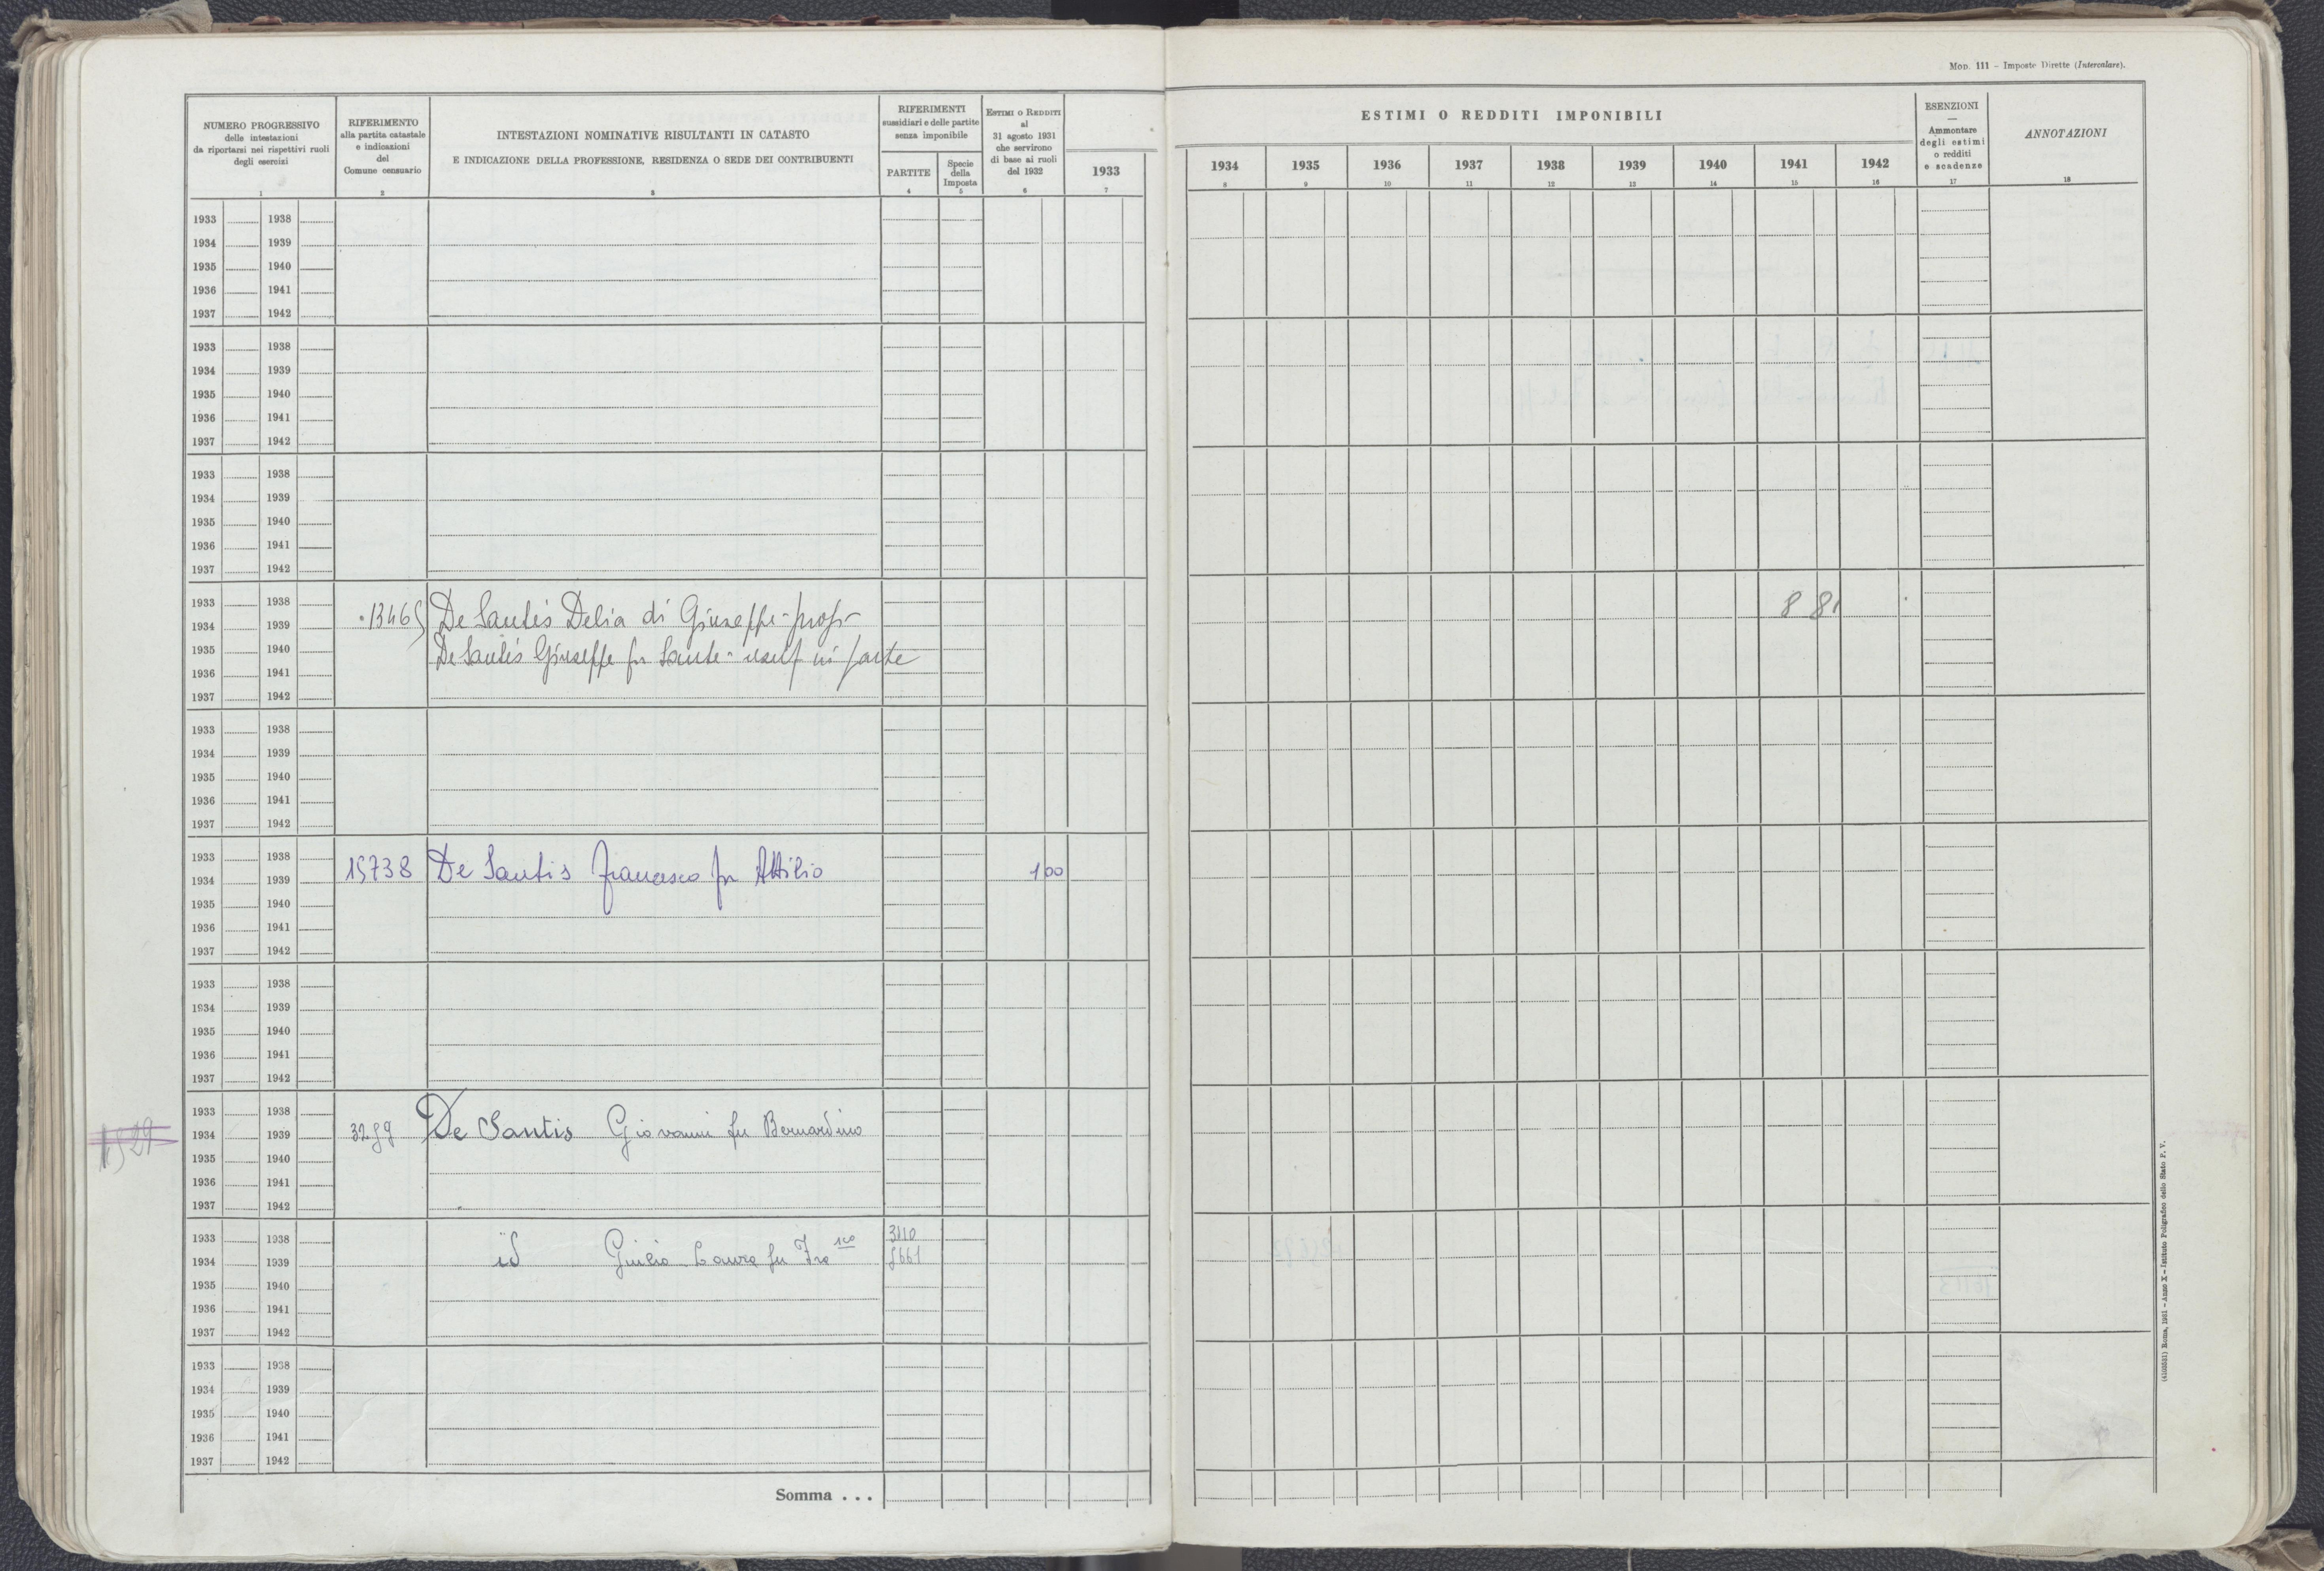 Mod. 111 – Imposte Dirette (Intercalare).
NUMERO PROGRESSIVO
delle intestazioni
da riportarsi nei rispettivi ruoli
degli esercizi
1
RIFERIMENTO
alla partita catastale
e indicazioni
del
Comune censuario
2
INTESTAZIONI NOMINATIVE RISULTANTI IN CATASTO
E INDICAZIONE DELLA PROFESSIONE, RESIDENZA O SEDE DEI CONTRIBUENTI
3
RIFERIMENTI
sussidiari e delle partite
senza imponibile
PARTITE
4
Specie
della
Imposta
5
ESTIMI O REDDITI
al
31 agosto 1931
che servirono
di base ai ruoli
del 1932
6
1933
7
ESTIMI O REDDITI IMPONIBILI
1934 1935 1936 1937 1938 1939 1940 1941 1942
8 9 10 11 12 13 14 15 16
ESENZIONI
—
Ammontare
degli estimi
o redditi
e scadenze
17
ANNOTAZIONI
18
1933 1938
1934 1939
1935 1940
1936 1941
1937 1942
1933 1938
1934 1939
1935 1940
1936 1941
1937 1942
1933 1938
1934 1939
1935 1940
1936 1941
1937 1942
1933 1938
1934 1939
1935 1940
1936 1941
1937 1942
De Santis Delia di Giuseppe - propr
De Santis Giuseppe fu Sante - usuf in parte
8 81
1933 1938
1934 1939
1935 1940
1936 1941
1937 1942
1933 1938
1934 1939
1935 1940
1936 1941
1937 1942
15738 De Santis Francesco fu Attilio 100
1933 1938
1934 1939
1935 1940
1936 1941
1937 1942
1933 1938
1934 1939
1935 1940
1936 1941
1937 1942
De Santis Giovanni fu Bernardino
1933 1938
1934 1939
1935 1940
1936 1941
1937 1942
id Giulio Laura fu Fra sco
3110
1933 1938
1934 1939
1935 1940
1936 1941
1937 1942
Somma . . .
(4105531) Roma, 1931 – Anno X – Istituto Poligrafico dello Stato P. V.